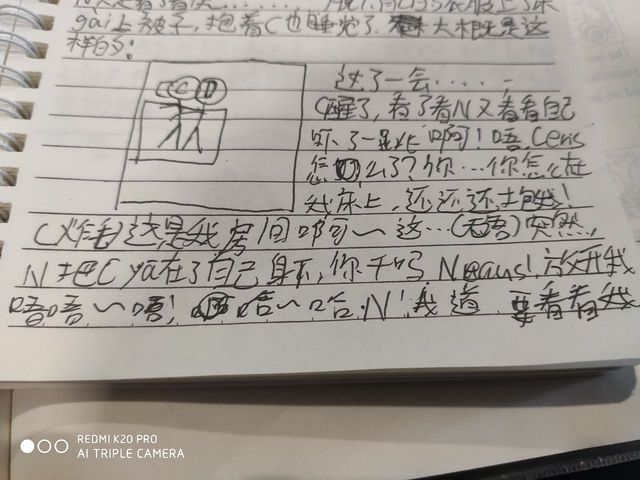 衣服上了床
gai上被子,抱着C也睡觉了.大概是这
样的:
C
过了一会.....
C醒了,看了看N又看看自己
吓了一跳 啊!唔,Cens
怎么了?你…你怎么在
我床上,还还还抱我!
(炸毛)这是我房间啊~这…(无语)突然,
N把C ya在了自己身下,你干吗 放开我
唔唔~唔! 哈~哈,N!我道 要看看我
REDMI K20 PRO
AI TRIPLE CAMERA